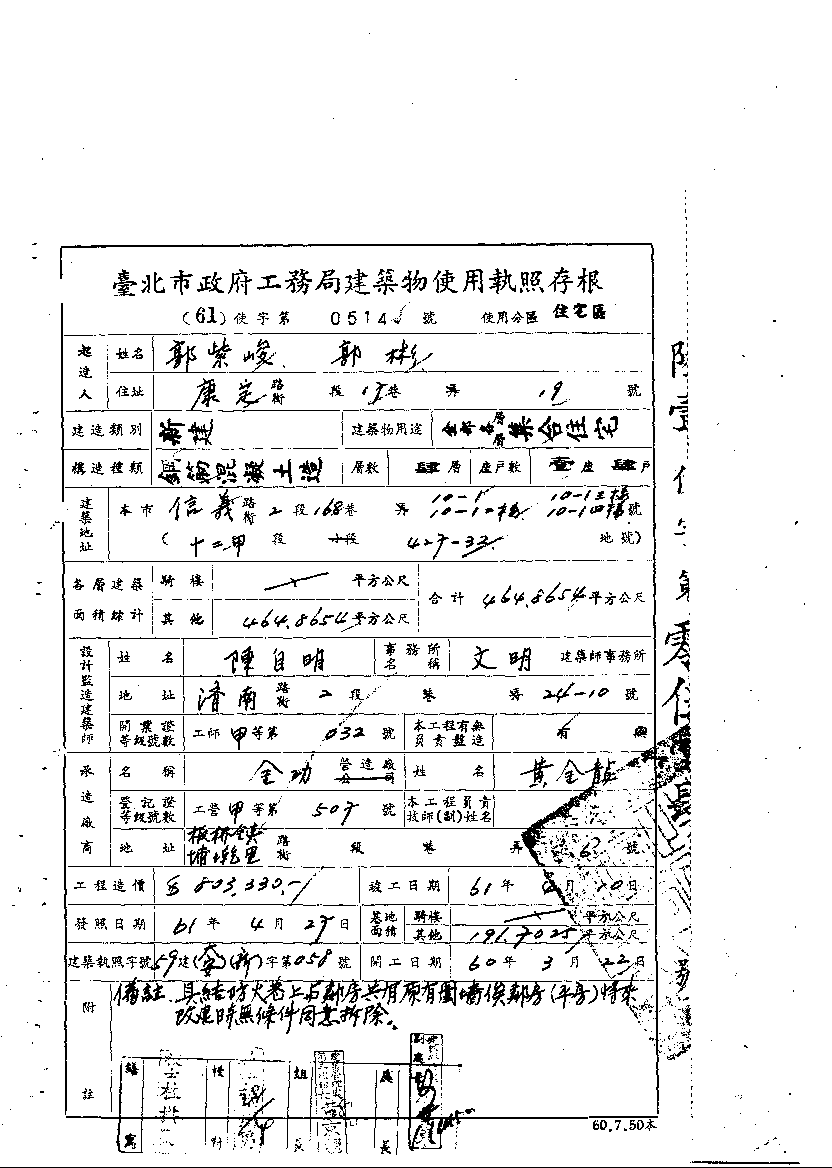 臺北市政府工務局建築物使用執照存根
(61)使字第 0514 號 使用分區 住宅區
起造人 姓名 郭紫峻 郭彬
住址 康定路街 段 17巷 弄 19 號
建造類別 新建 建築物用途 全部各層集合住宅
構造種類 鋼筋混凝土造 層數 肆層 座戶數 壹座 肆戶
建築地址 本市 信義路街 2段168巷 弄 10-1 10-1二樓 10-1三樓 10-1四樓 號
(十二甲 段 小段 427-33 地號)
各層建築面積綜計 騎樓 平方公尺 合計 464.8654平方公尺
其他 464.8654平方公尺
設計監造建築師 姓名 陳自明 事務所名稱 文明 建築師事務所
地址 濟南路街 2段 巷 弄 24-10 號
開業證等級號數 工師 甲等第 032 號 本工程有無負責監造 有
承造廠商 名稱 全功 營造廠公司 姓名 黃全龍
登記證等級號數 工營 甲等第 507 號 本工程負責技師(副)姓名
地址 板橋鎮埔墘里 路街 段 巷 弄 6 號
工程造價 $803,330.- 竣工日期 61年 月10日
發照日期 61年4月27日 基地面積 騎樓 平方公尺
其他 191.7025平方公尺
建築執照字號 59建()()字第058號 開工日期 60年3月22日
附註 備註 具結防火巷上与鄰房共有原有圍墻俟鄰房(平房)將來
改建時無條件同意拆除。
繕寫 校對 組長 處長
60.7.50本